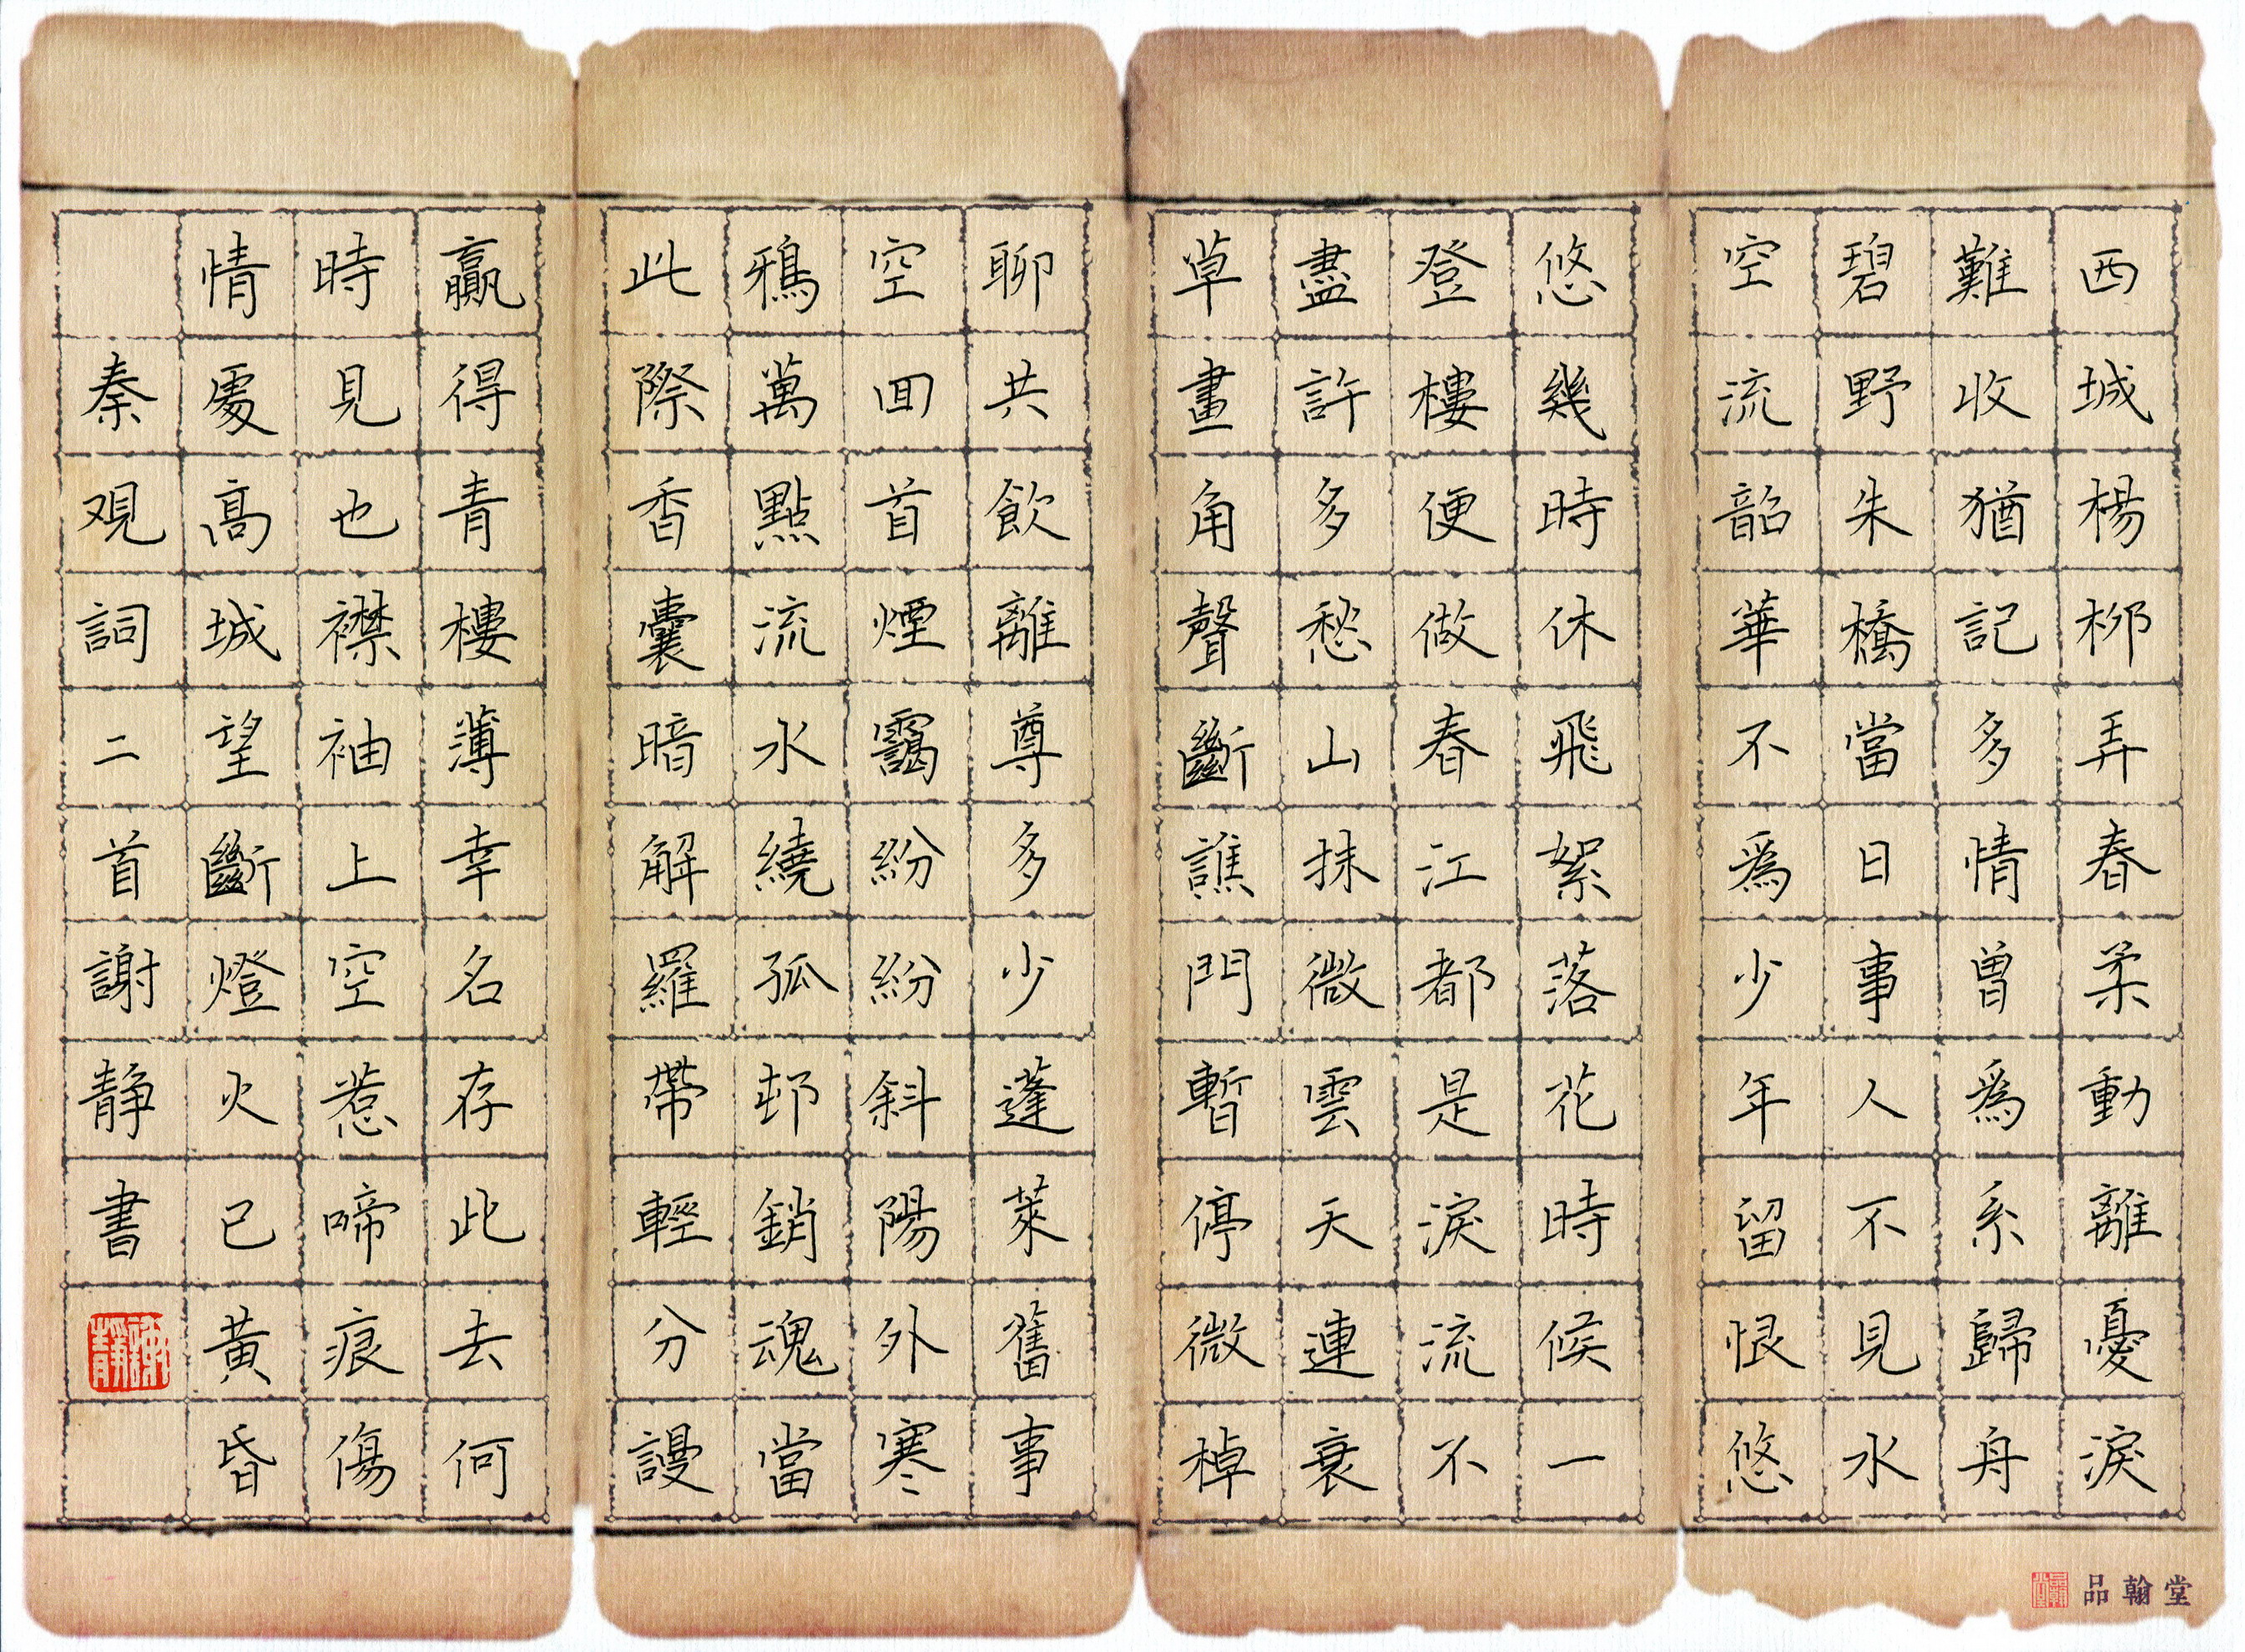 西城楊柳弄春柔動離憂淚
難收猶記多情曾爲系歸舟
碧野朱橋當日事人不見水
空流韶華不爲少年留恨悠
悠幾時休飛絮落花時候一
登樓便做春江都是淚流不
盡許多愁山抹微雲天連衰
草畫角聲斷譙門暫停微棹
聊共飲離尊多少蓬萊舊事
空回首煙靄紛紛斜陽外寒
鴉萬點流水繞孤邨銷魂當
此際香囊暗解羅帶輕分謾
贏得青樓薄幸名存此去何
時見也襟袖上空惹啼痕傷
情處高城望斷燈火已黃昏
秦观詞二首謝靜書
品翰堂